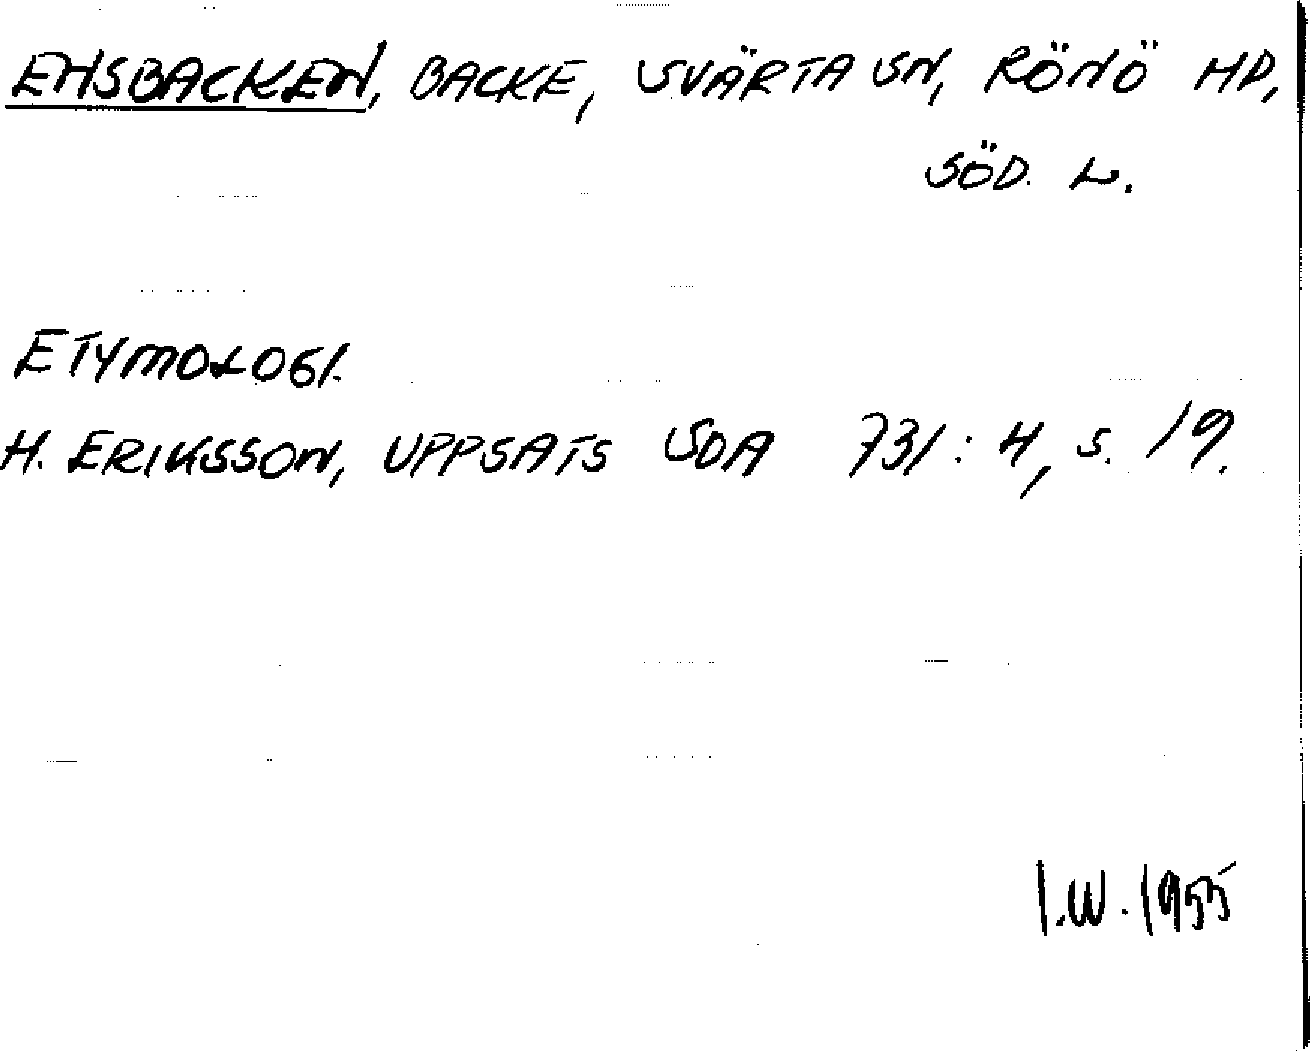 EHSBACKEN, BACKE, SVÄRTA SN, RÖNÖ HD,
SÖD. L.
ETYMOLOGI.
H. ERIKSSON, UPPSATS SOA 731:4, S. 19.
I.W. 1955